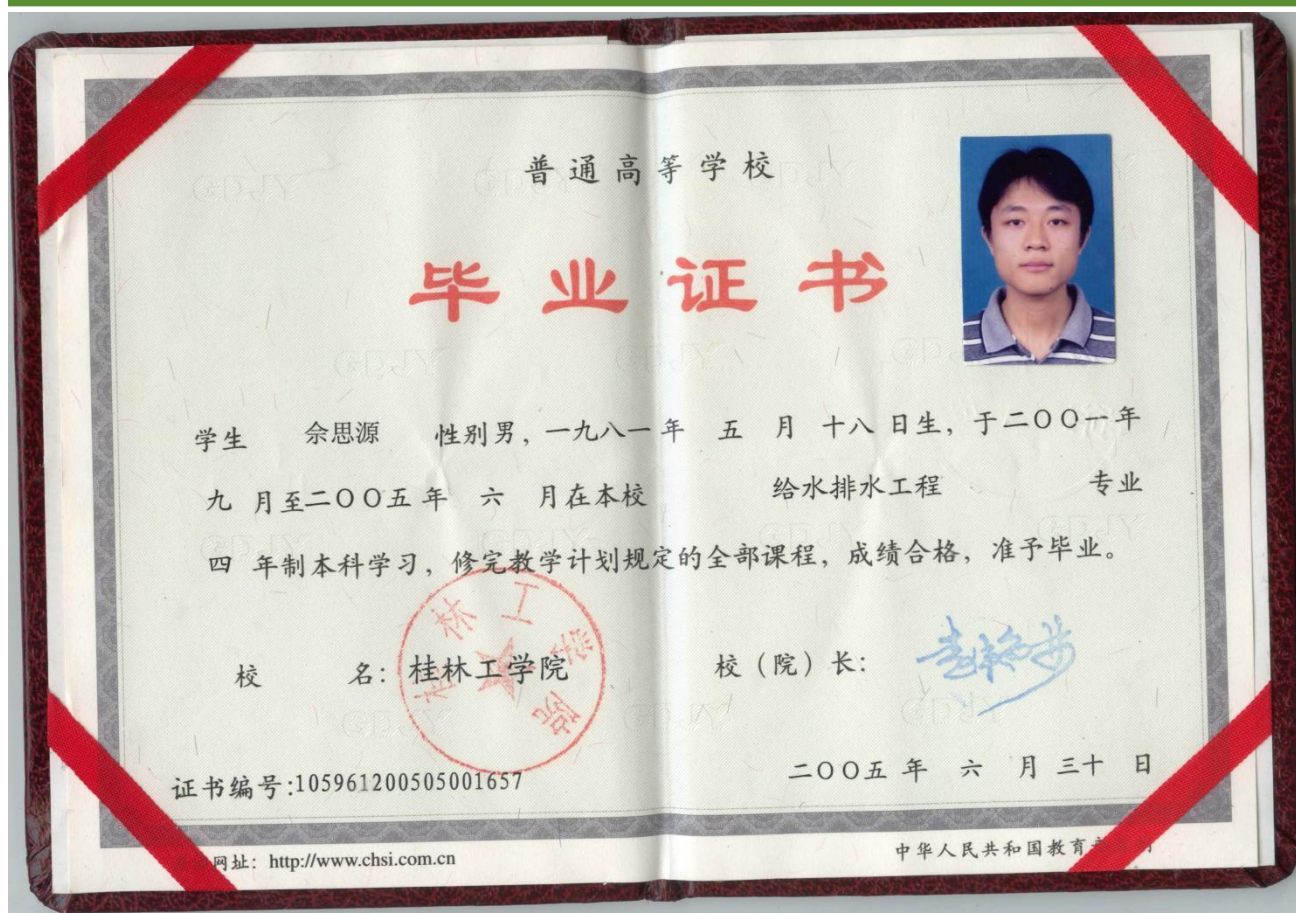 普通高等学校
毕业证书
学生 佘思源 性别男，一九八一年 五 月 十八 日生，于二〇〇一年
九 月至二〇〇五年 六 月在本校 给水排水工程 专业
四 年制本科学习，修完教学计划规定的全部课程，成绩合格，准予毕业。
校 名：桂林工学院
校（院）长：
桂林工学院
证书编号:105961200505001657
二〇〇五年 六 月 三十 日
网址：http://www.chsi.com.cn
中华人民共和国教育
GDJY